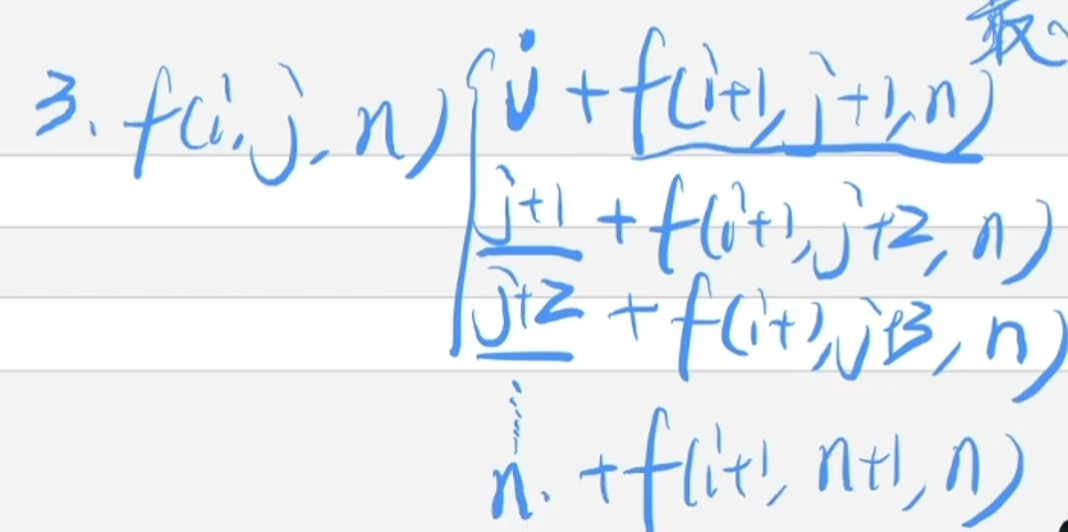 最
3. f(i, j, n) { j + f(i+1, j+1, n)
j+1 + f(i+1, j+2, n)
j+2 + f(i+1, j+3, n)
⋮
n. + f(i+1, n+1, n)